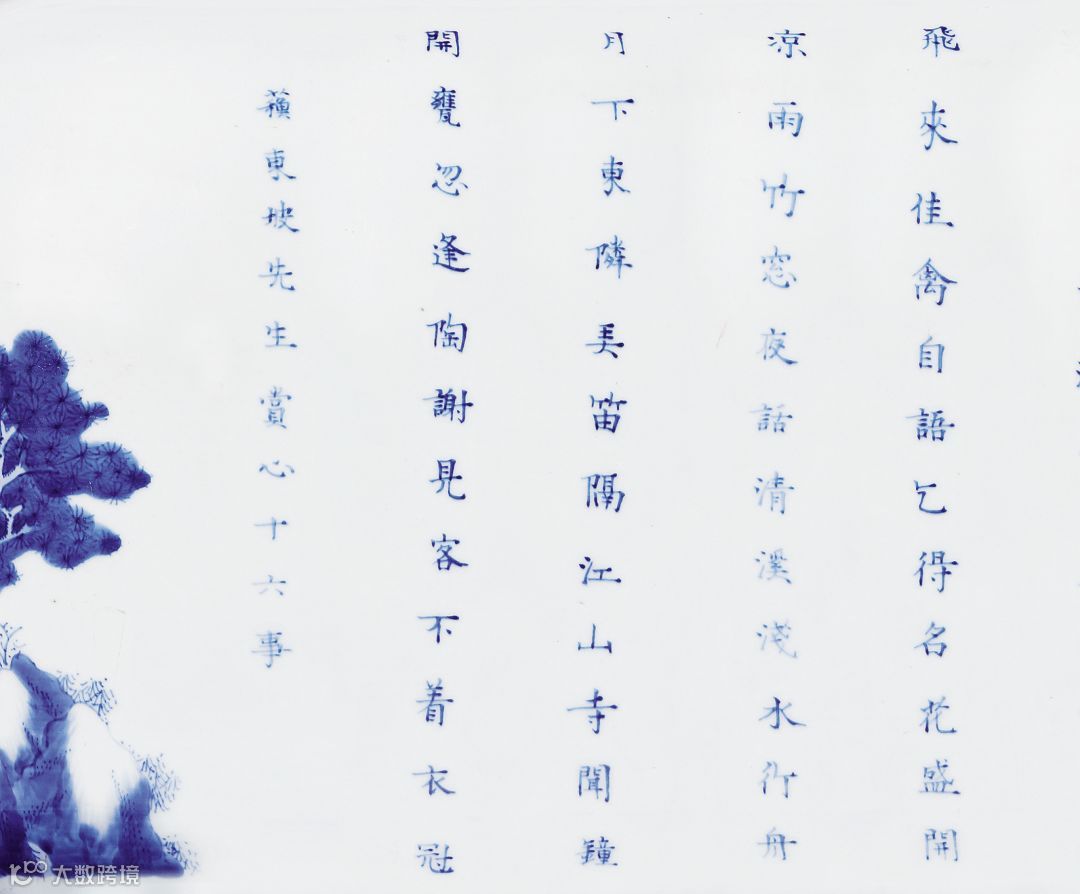 飛來佳禽自語乞得名花盛開
涼雨竹窓夜話清溪淺水行舟
月下東隣美笛隔江山寺聞鐘
開甕忽逢陶謝見客不着衣冠
蘓東坡先生賞心十六事
大数跨境